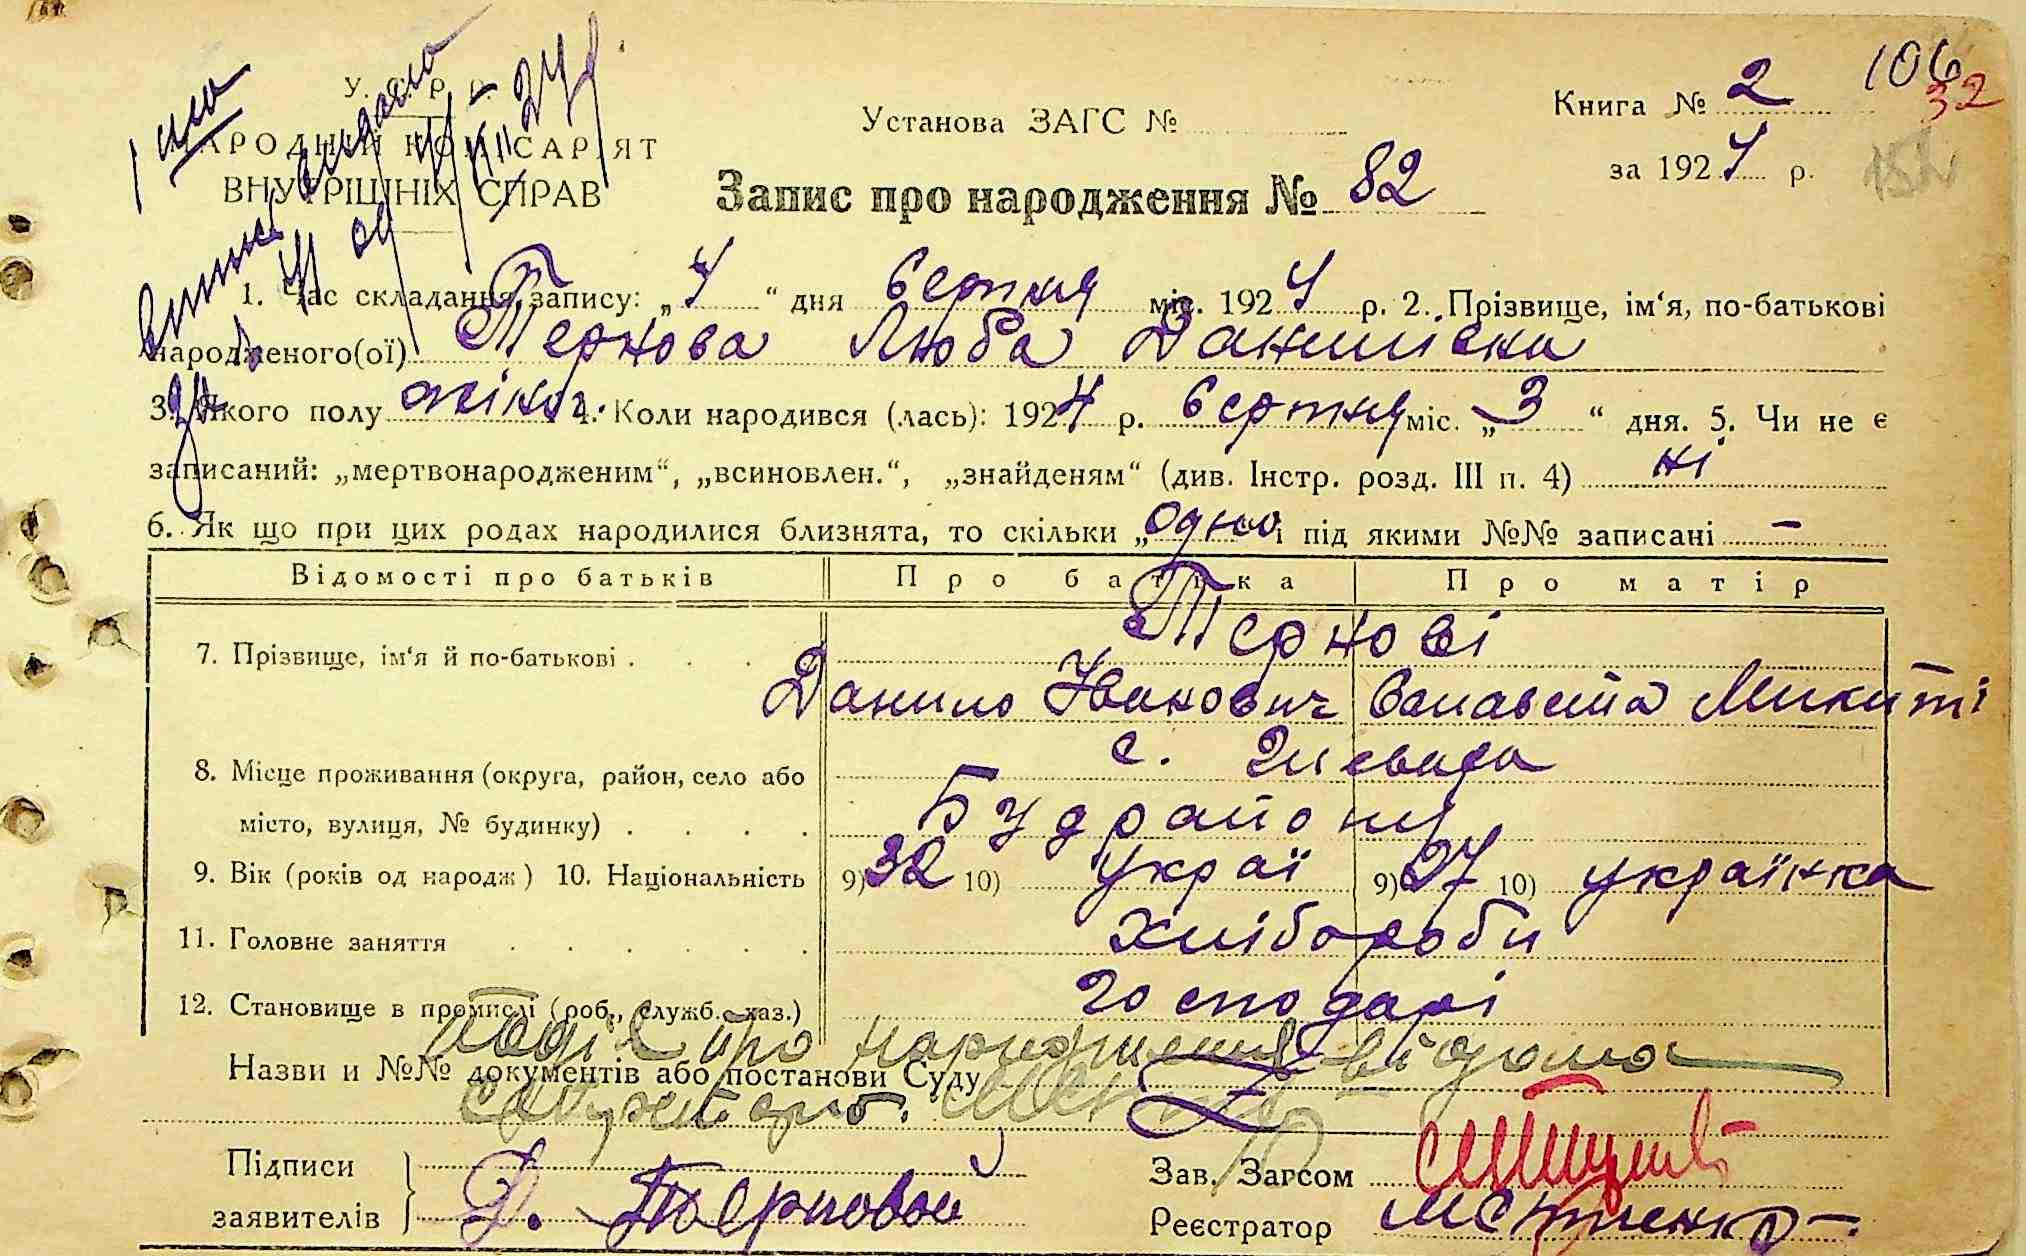 106
32
152
1 шт
У. С. Р. Р.
НАРОДНІЙ КОМІСАРІЯТ
ВНУТРІШНІХ СПРАВ
Установа ЗАГС №
Книга № 2
за 1924 р.
Запис про народження № 82
1. Час складання запису: „4“ дня серпня міс. 1924 р. 2. Прізвище, ім‘я, по-батькові
народженого(ої) Тернова Люба Данилівна
3. Якого полу жіноч. 4. Коли народився (лась): 1924 р. серпня міс. „3“ дня. 5. Чи не є
записаний: „мертвонародженим“, „всиновлен.“, „знайденям“ (див. Інстр. розд. III п. 4) ні
6. Як що при цих родах народилися близнята, то скільки „одно і під якими №№ записані —
Відомості про батьків Про батька Про матір
7. Прізвище, ім‘я й по-батькові . . . Тернові
Данило Іванович Єлисавета Микиті
8. Місце проживання (округа, район, село або с.
місто, вулиця, № будинку) . . . . Будрайону
9. Вік (років од народж) 10. Національність 9) 32 10) украї 9) 27 10) українка
11. Головне заняття . . . . . . Хлібороби
12. Становище в промислі (роб., служб., хаз.) господарі
про народження відома
Назви и №№ документів або постанови Суду
Підписи
заявителів Д. Терновой
Зав. Загсом
Реєстратор